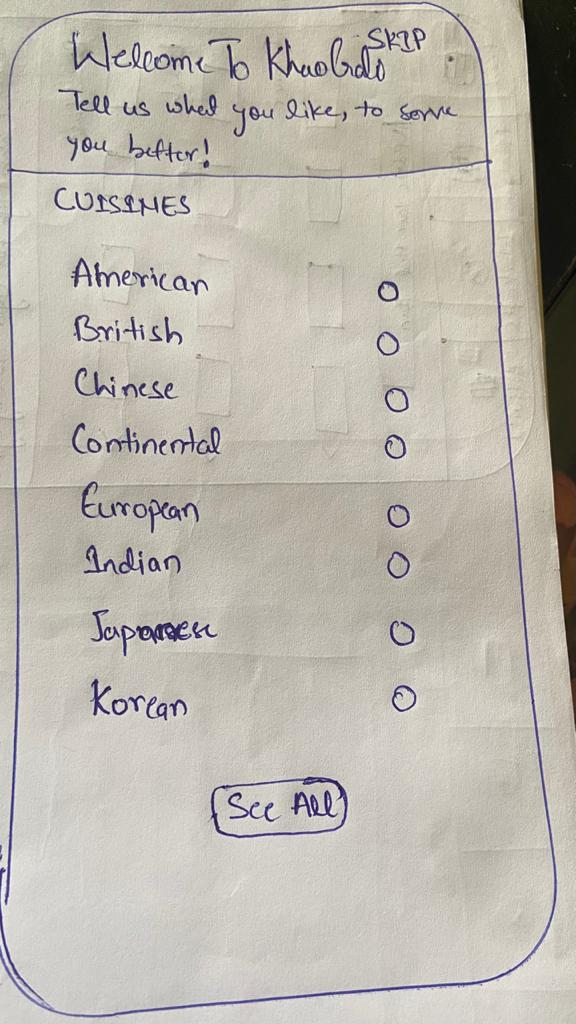 SKIP
Welcome To
Tell us what you like, to serve
you better!
CUISINES
American
British
Chinese
Continental
European
Indian
Japanese
Korean
See All